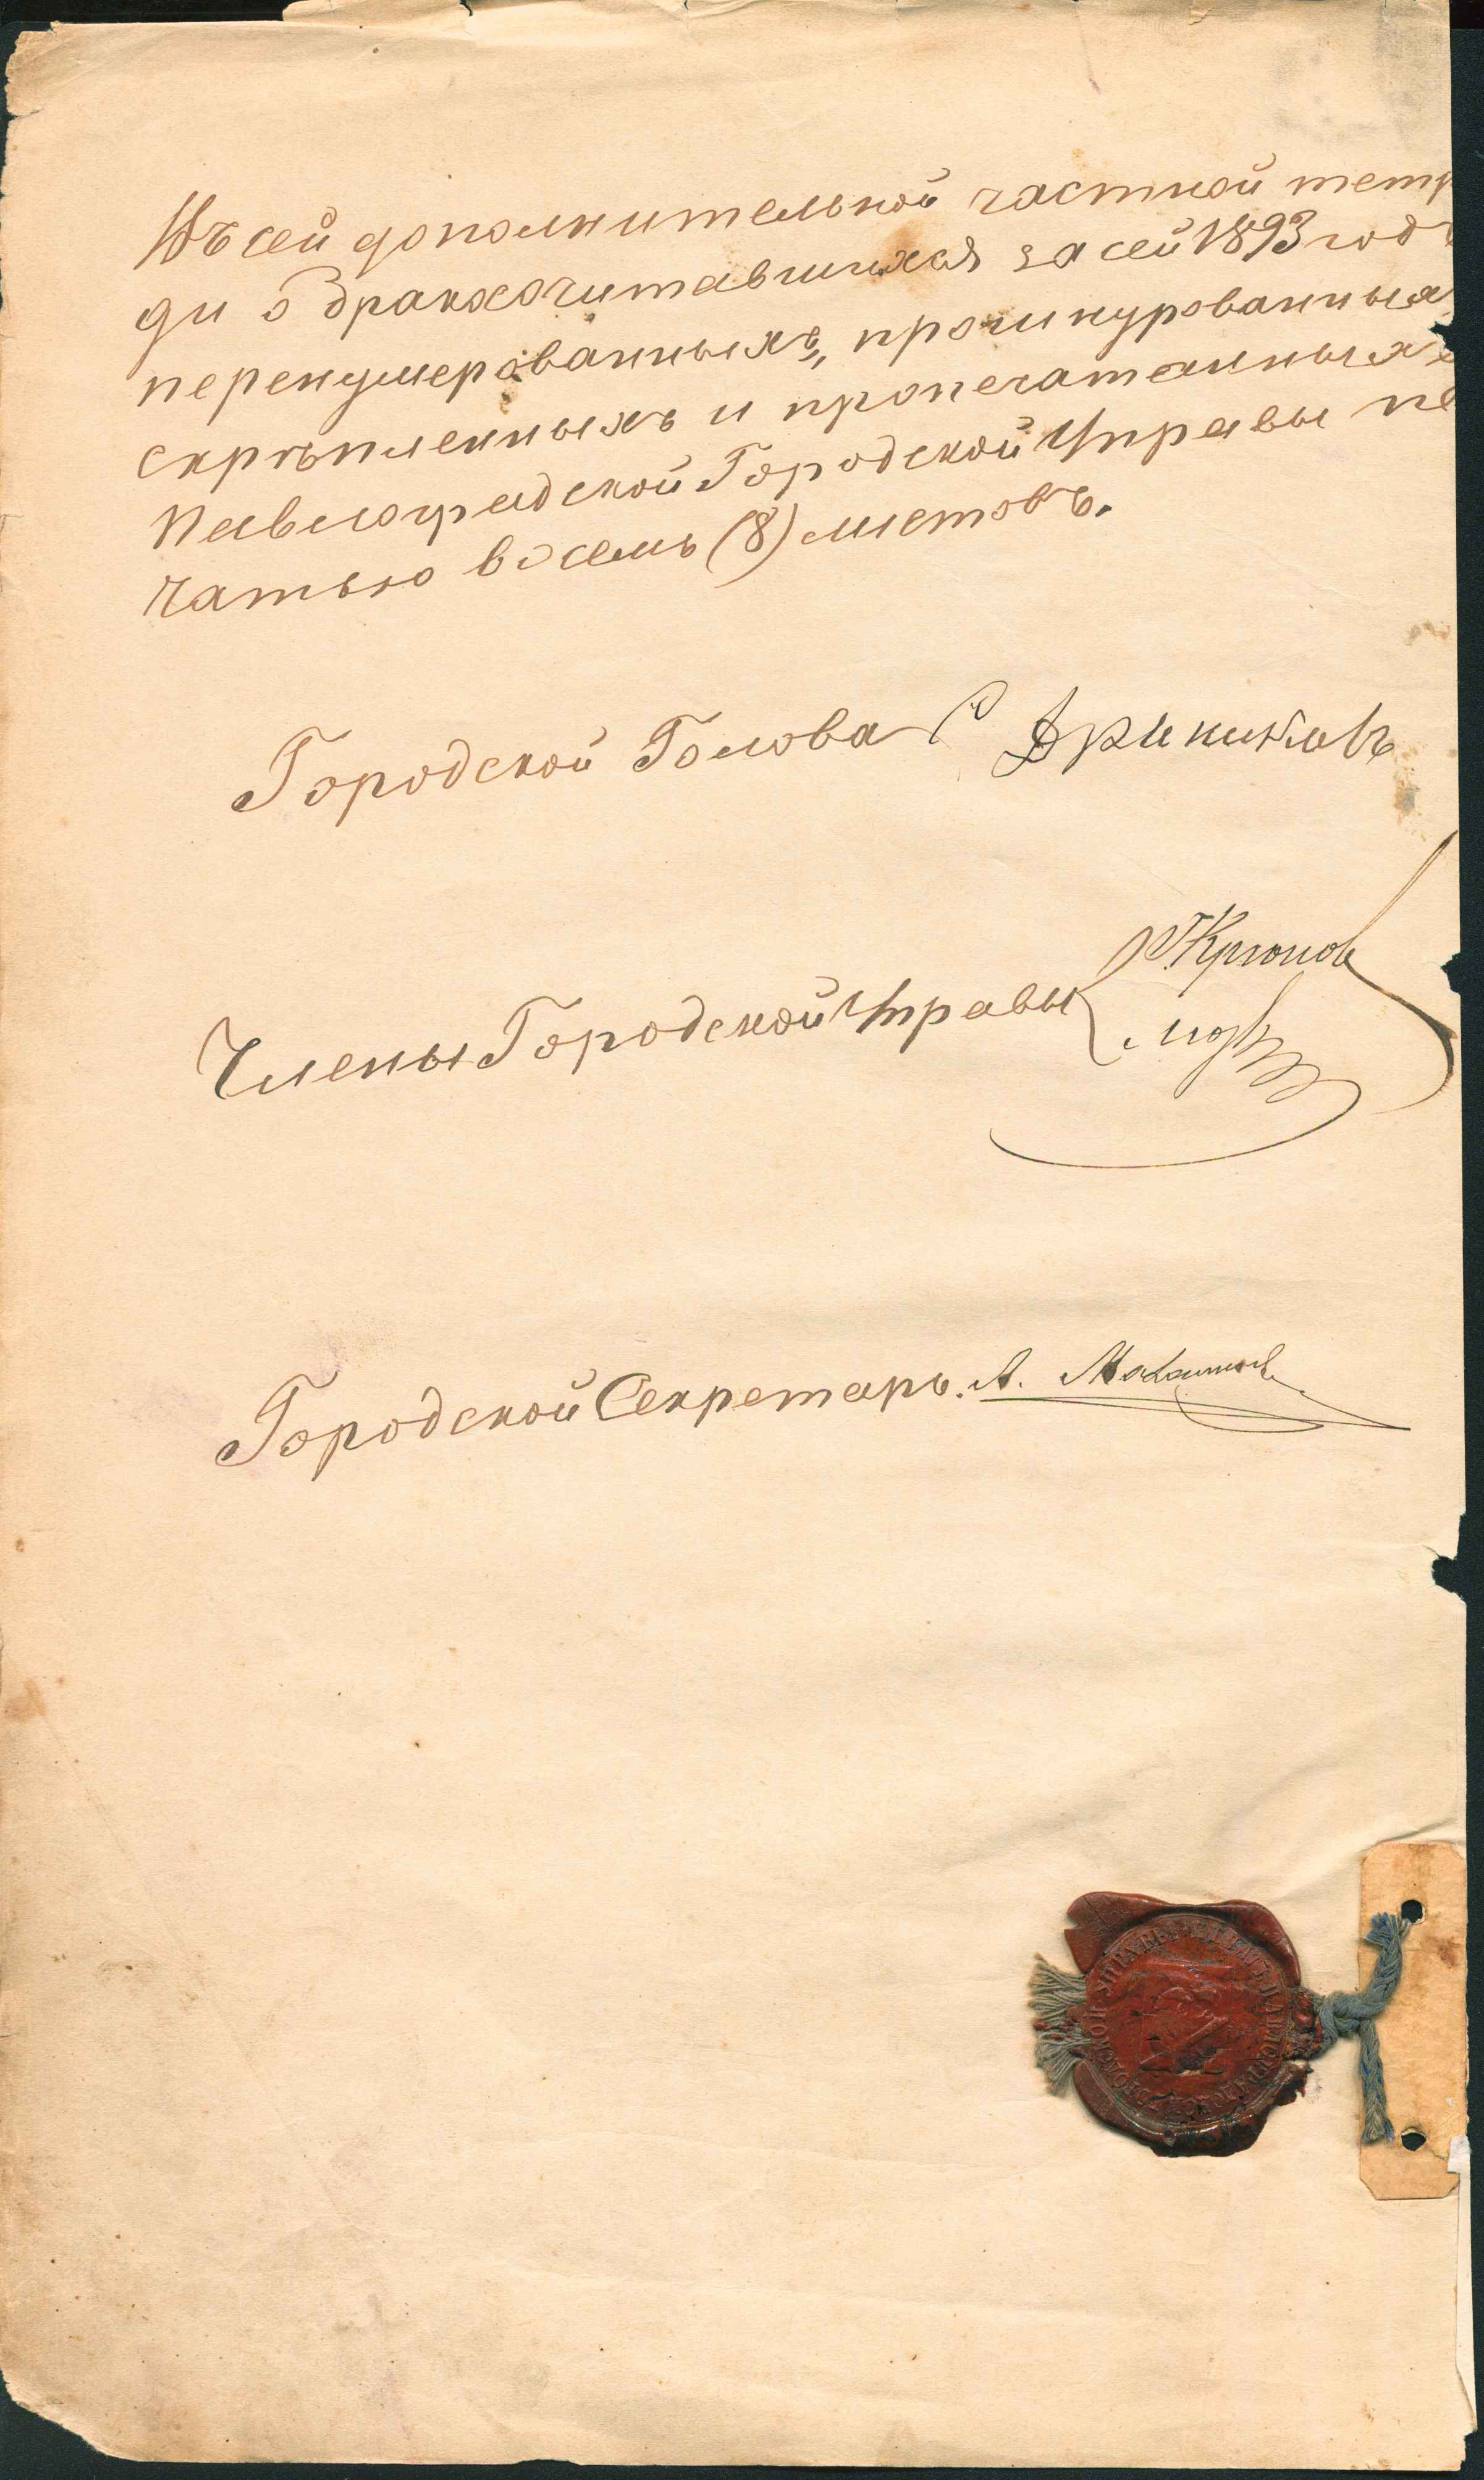 Въ сей дополнительной частной тетр
ди о бракосочитавшихся за сей 1893 год
перенумерованныхъ, прошнурованныхъ
скрѣпленныхъ и пропечатанныхъ
Павлоградской Городской Управы пе
чатью восемь (8) листовъ.
Городской Голова
Члены Городской Управы
Городской Секретарь. А.